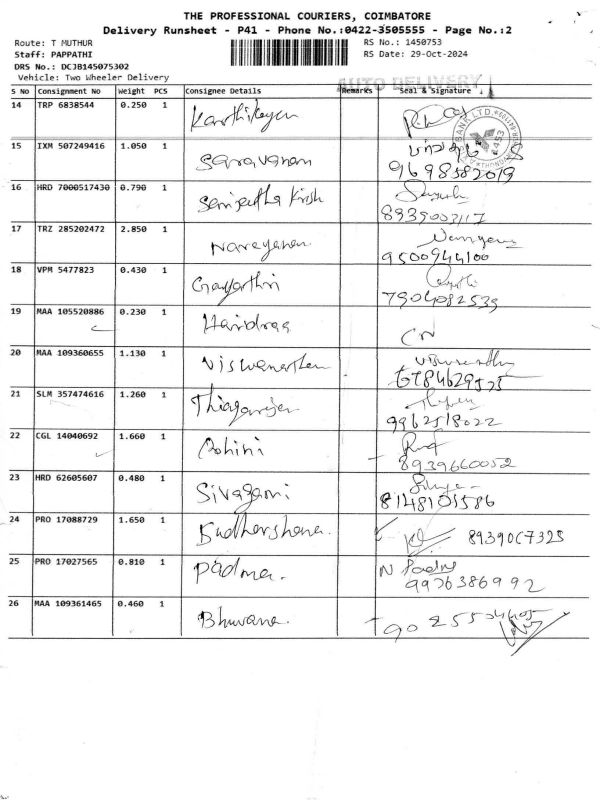 THE PROFESSIONAL COURIERS, COIMBATORE
Delivery Runsheet - P41 - Phone No.:0422-3505555 - Page No.:2
Route: T MUTHUR
RS No.: 1450753
Staff: PAPPATHI
RS Date: 29-Oct-2024
DRS No.: DCJB145075302
Vehicle: Two Wheeler Delivery
AUTO DELIVERY
S No Consignment No Weight PCS Consignee Details Remarks Seal & Signature
14 TRP 6838544 0.250 1 Karthikeyan
BANK LTD.
15 IXM 507249416 1.050 1 Saravanan
9698582019
16 HRD 7000517430 0.790 1
8939003117
17 TRZ 285202472 2.850 1 Narayanan
9500944100
18 VPM 5477823 0.430 1 Gayathri
7904082539
19 MAA 105520886 0.230 1
20 MAA 109360655 1.130 1 Viswanathan
21 SLM 357474616 1.260 1 Thiagarajan
9962518022
22 CGL 14040692 1.660 1 Rohini
8939660052
23 HRD 62605607 0.480 1 Sivagami
8148101586
24 PRO 17088729 1.650 1 Sudharshana.
8939067325
25 PRO 17027565 0.810 1 Padma. N Padma
9976386992
26 MAA 109361465 0.460 1 Bhuvana.